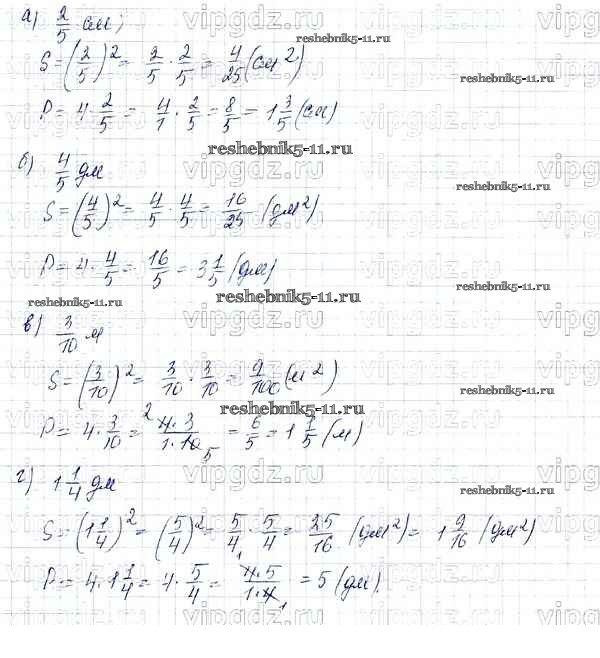 а) 2/5 см;
S=(2/5)²= 2/5 · 2/5 = 4/25 (см²)
P= 4·2/5 = 4/1 · 2/5 = 8/5 = 1 3/5 (см)
б) 4/5 дм
S=(4/5)²= 4/5 · 4/5 = 16/25 (дм²)
P= 4·4/5 = 16/5 = 3 1/5 (дм)
в) 3/10 м
S=(3/10)²= 3/10 · 3/10 = 9/100 (м²)
P= 4·3/10 = ²4·3/1·10₅ = 6/5 = 1 1/5 (м)
г) 1 1/4 дм
S=(1 1/4)²= (5/4)²= 5/4 · 5/4 = 25/16 (дм²)= 1 9/16 (дм²)
P= 4·1 1/4 = 4·5/4 = ¹4·5/1·4₁ = 5 (дм).
reshebnik5-11.ru
vipgdz.ru